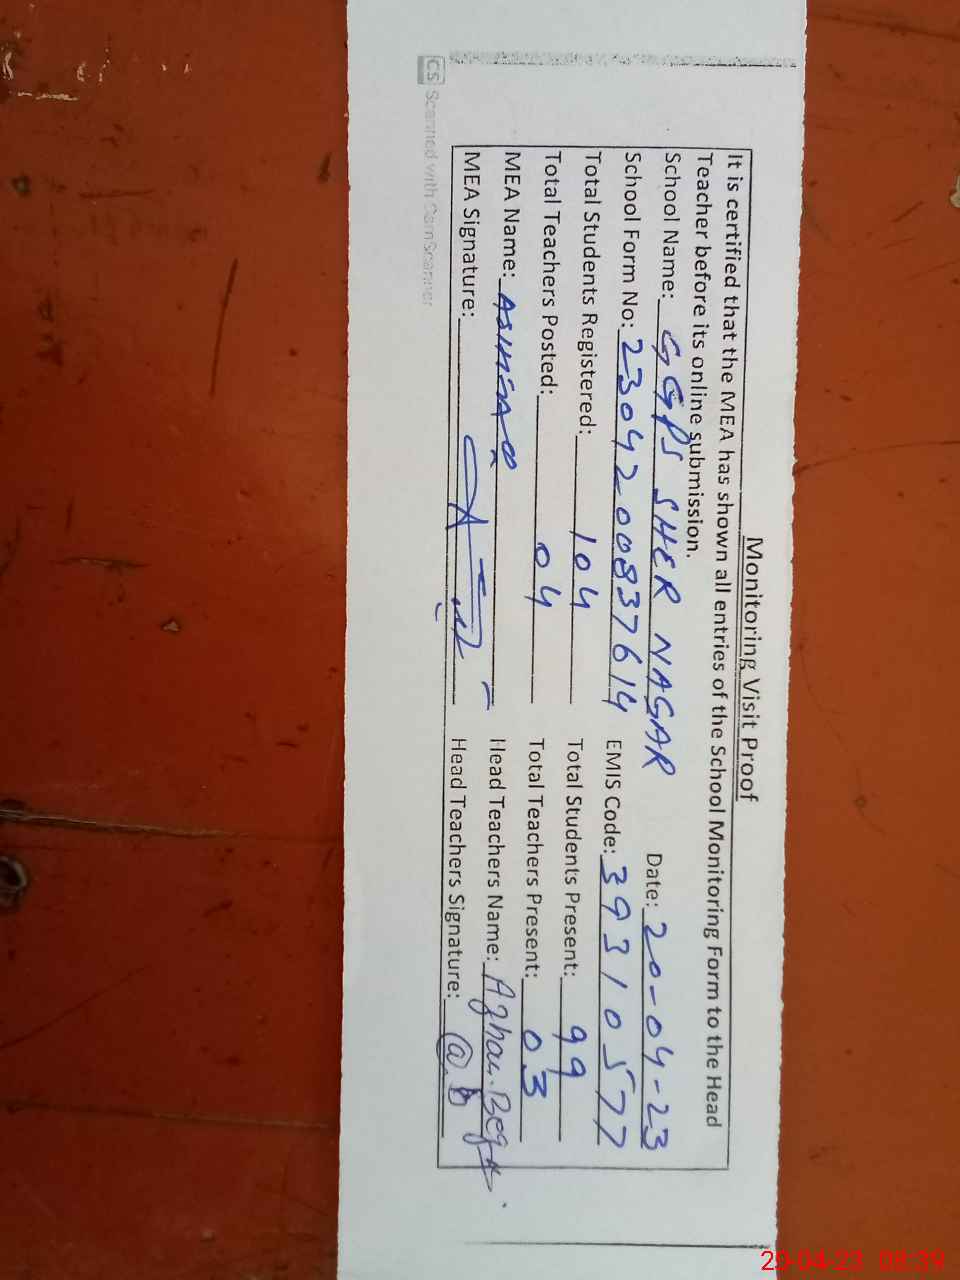 Monitoring Visit Proof
It is certified that the MEA has shown all entries of the School Monitoring Form to the Head
Teacher before its online submission.
School Name: GGPS SHER NAGAR Date: 20-04-23
School Form No: 2304200837614 EMIS Code: 39310577
Total Students Registered: 104 Total Students Present: 99
Total Teachers Posted: 04 Total Teachers Present: 03
MEA Name: Head Teachers Name:
MEA Signature: Head Teachers Signature:
CS Scanned with CamScanner
20-04-23 08:39